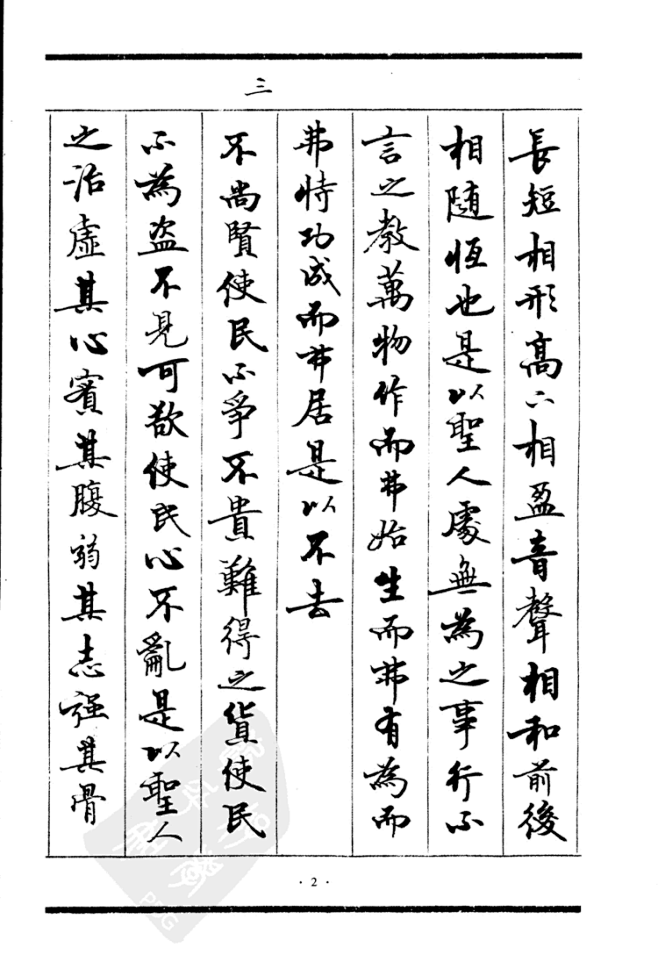 長短相形高下相盈音聲相和前後
相随恆也是以聖人處無為之事行不
言之教萬物作而弗始生而弗有為而
弗恃功成而弗居是以不去
三
不尚賢使民不爭不貴難得之貨使民
不為盗不見可欲使民心不亂是以聖人
之治虛其心實其腹弱其志强其骨
· 2 ·
PDG